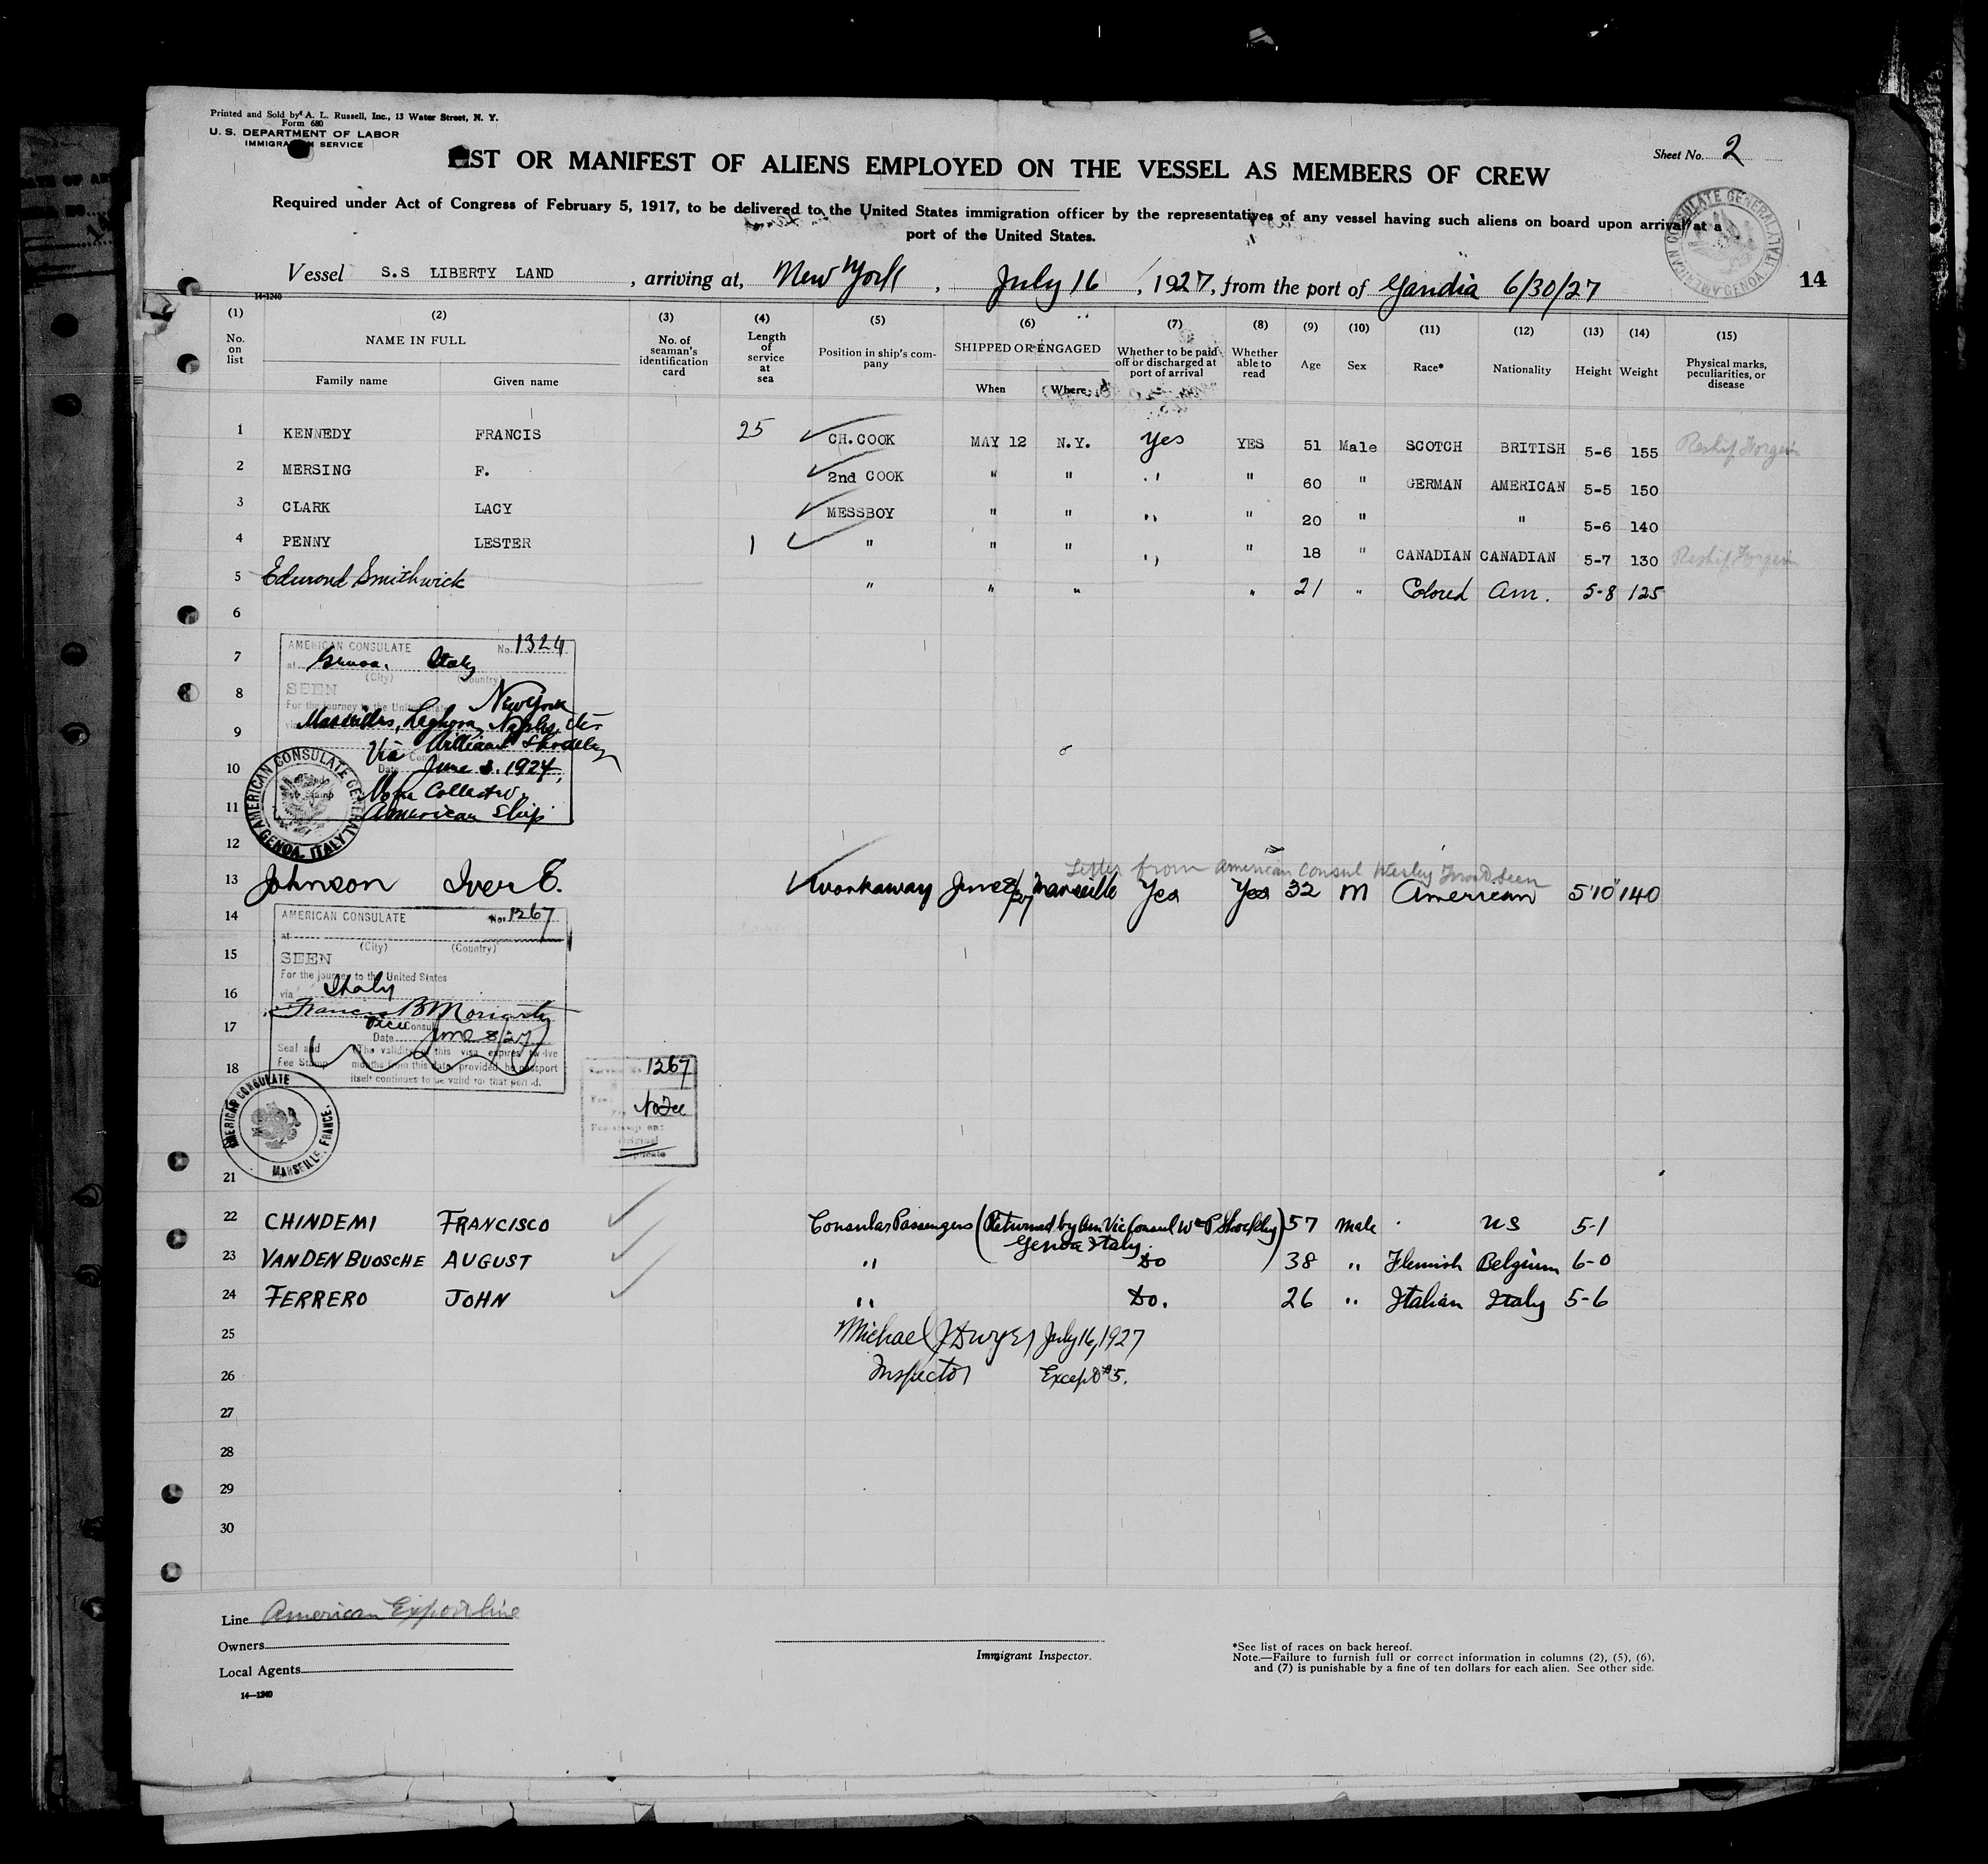 Printed and Sold by A. L. Russell, Inc., 13 Water Street, N. Y.
Form 680
U. S. DEPARTMENT OF LABOR
IMMIGRATION SERVICE
Sheet No. 2
LIST OR MANIFEST OF ALIENS EMPLOYED ON THE VESSEL AS MEMBERS OF CREW
Required under Act of Congress of February 5, 1917, to be delivered to the United States immigration officer by the representatives of any vessel having such aliens on board upon arrival at a
port of the United States.
AMERICAN CONSULATE GENERAL GENOA, ITALY
Vessel S.S LIBERTY LAND , arriving at, New York , July 16 , 1927, from the port of Gandia 6/30/27
14
14-1240
(1) (2) (3) (4) (5) (6) (7) (8) (9) (10) (11) (12) (13) (14) (15)
No. on list
NAME IN FULL
Family name Given name
No. of seaman's identification card
Length of service at sea
Position in ship's company
SHIPPED OR ENGAGED
When Where
Whether to be paid off or discharged at port of arrival
Whether able to read
Age Sex Race* Nationality Height Weight
Physical marks, peculiarities, or disease
1 KENNEDY FRANCIS 25 CH.COOK MAY 12 N.Y. Yes YES 51 Male SCOTCH BRITISH 5-6 155 Reship Forgein
2 MERSING F. 2nd COOK " " " " 60 " GERMAN AMERICAN 5-5 150
3 CLARK LACY MESSBOY " " " " 20 " " 5-6 140
4 PENNY LESTER 1 " " " " " 18 " CANADIAN CANADIAN 5-7 130 Reship Forgein
5 Edmond Smithwick " " " " 21 " Colored Am. 5-8 125
6
7 AMERICAN CONSULATE No. 1324
at Genoa, Italy
(City) (Country)
8 SEEN
For the journey to the United States New York
9 via Marseilles, Leghorn, Naples, etc
Via
10 Date June 3. 1924,
11 American Ship
AMERICAN CONSULATE GENERAL GENOA, ITALY
12
Letter from American Consul Wesley Frost seen
13 Johnson Iver E. Workaway June 8/27 Marseille Yes Yes 32 M American 5'10" 140
14 AMERICAN CONSULATE No. 1267
at
(City) (Country)
15 SEEN
For the journey to the United States
16 via Italy
Francis B Moriarty
17 Vice Consul
Date June 8/27
Seal and Fee Stamp
18 (The validity of this visa expires twelve
months from this date, provided he passport
itself continues to be valid for that period.
1267
No Fee
AMERICAN CONSULATE MARSEILLE, FRANCE.
21
22 CHINDEMI FRANCISCO Consular Passengers (Returned by Am Vic Consul Wm P Shockley) 57 Male US 5-1
Genoa Italy
23 VANDEN BUOSCHE AUGUST " Do 38 " Flemish Belgium 6-0
24 FERRERO JOHN " Do. 26 " Italian Italy 5-6
25 Michael J Dwyer July 16, 1927
26 Inspector Except #5.
27
28
29
30
Line American Export line
Owners
Local Agents
14—1240
Immigrant Inspector.
*See list of races on back hereof.
Note.—Failure to furnish full or correct information in columns (2), (5), (6),
and (7) is punishable by a fine of ten dollars for each alien. See other side.